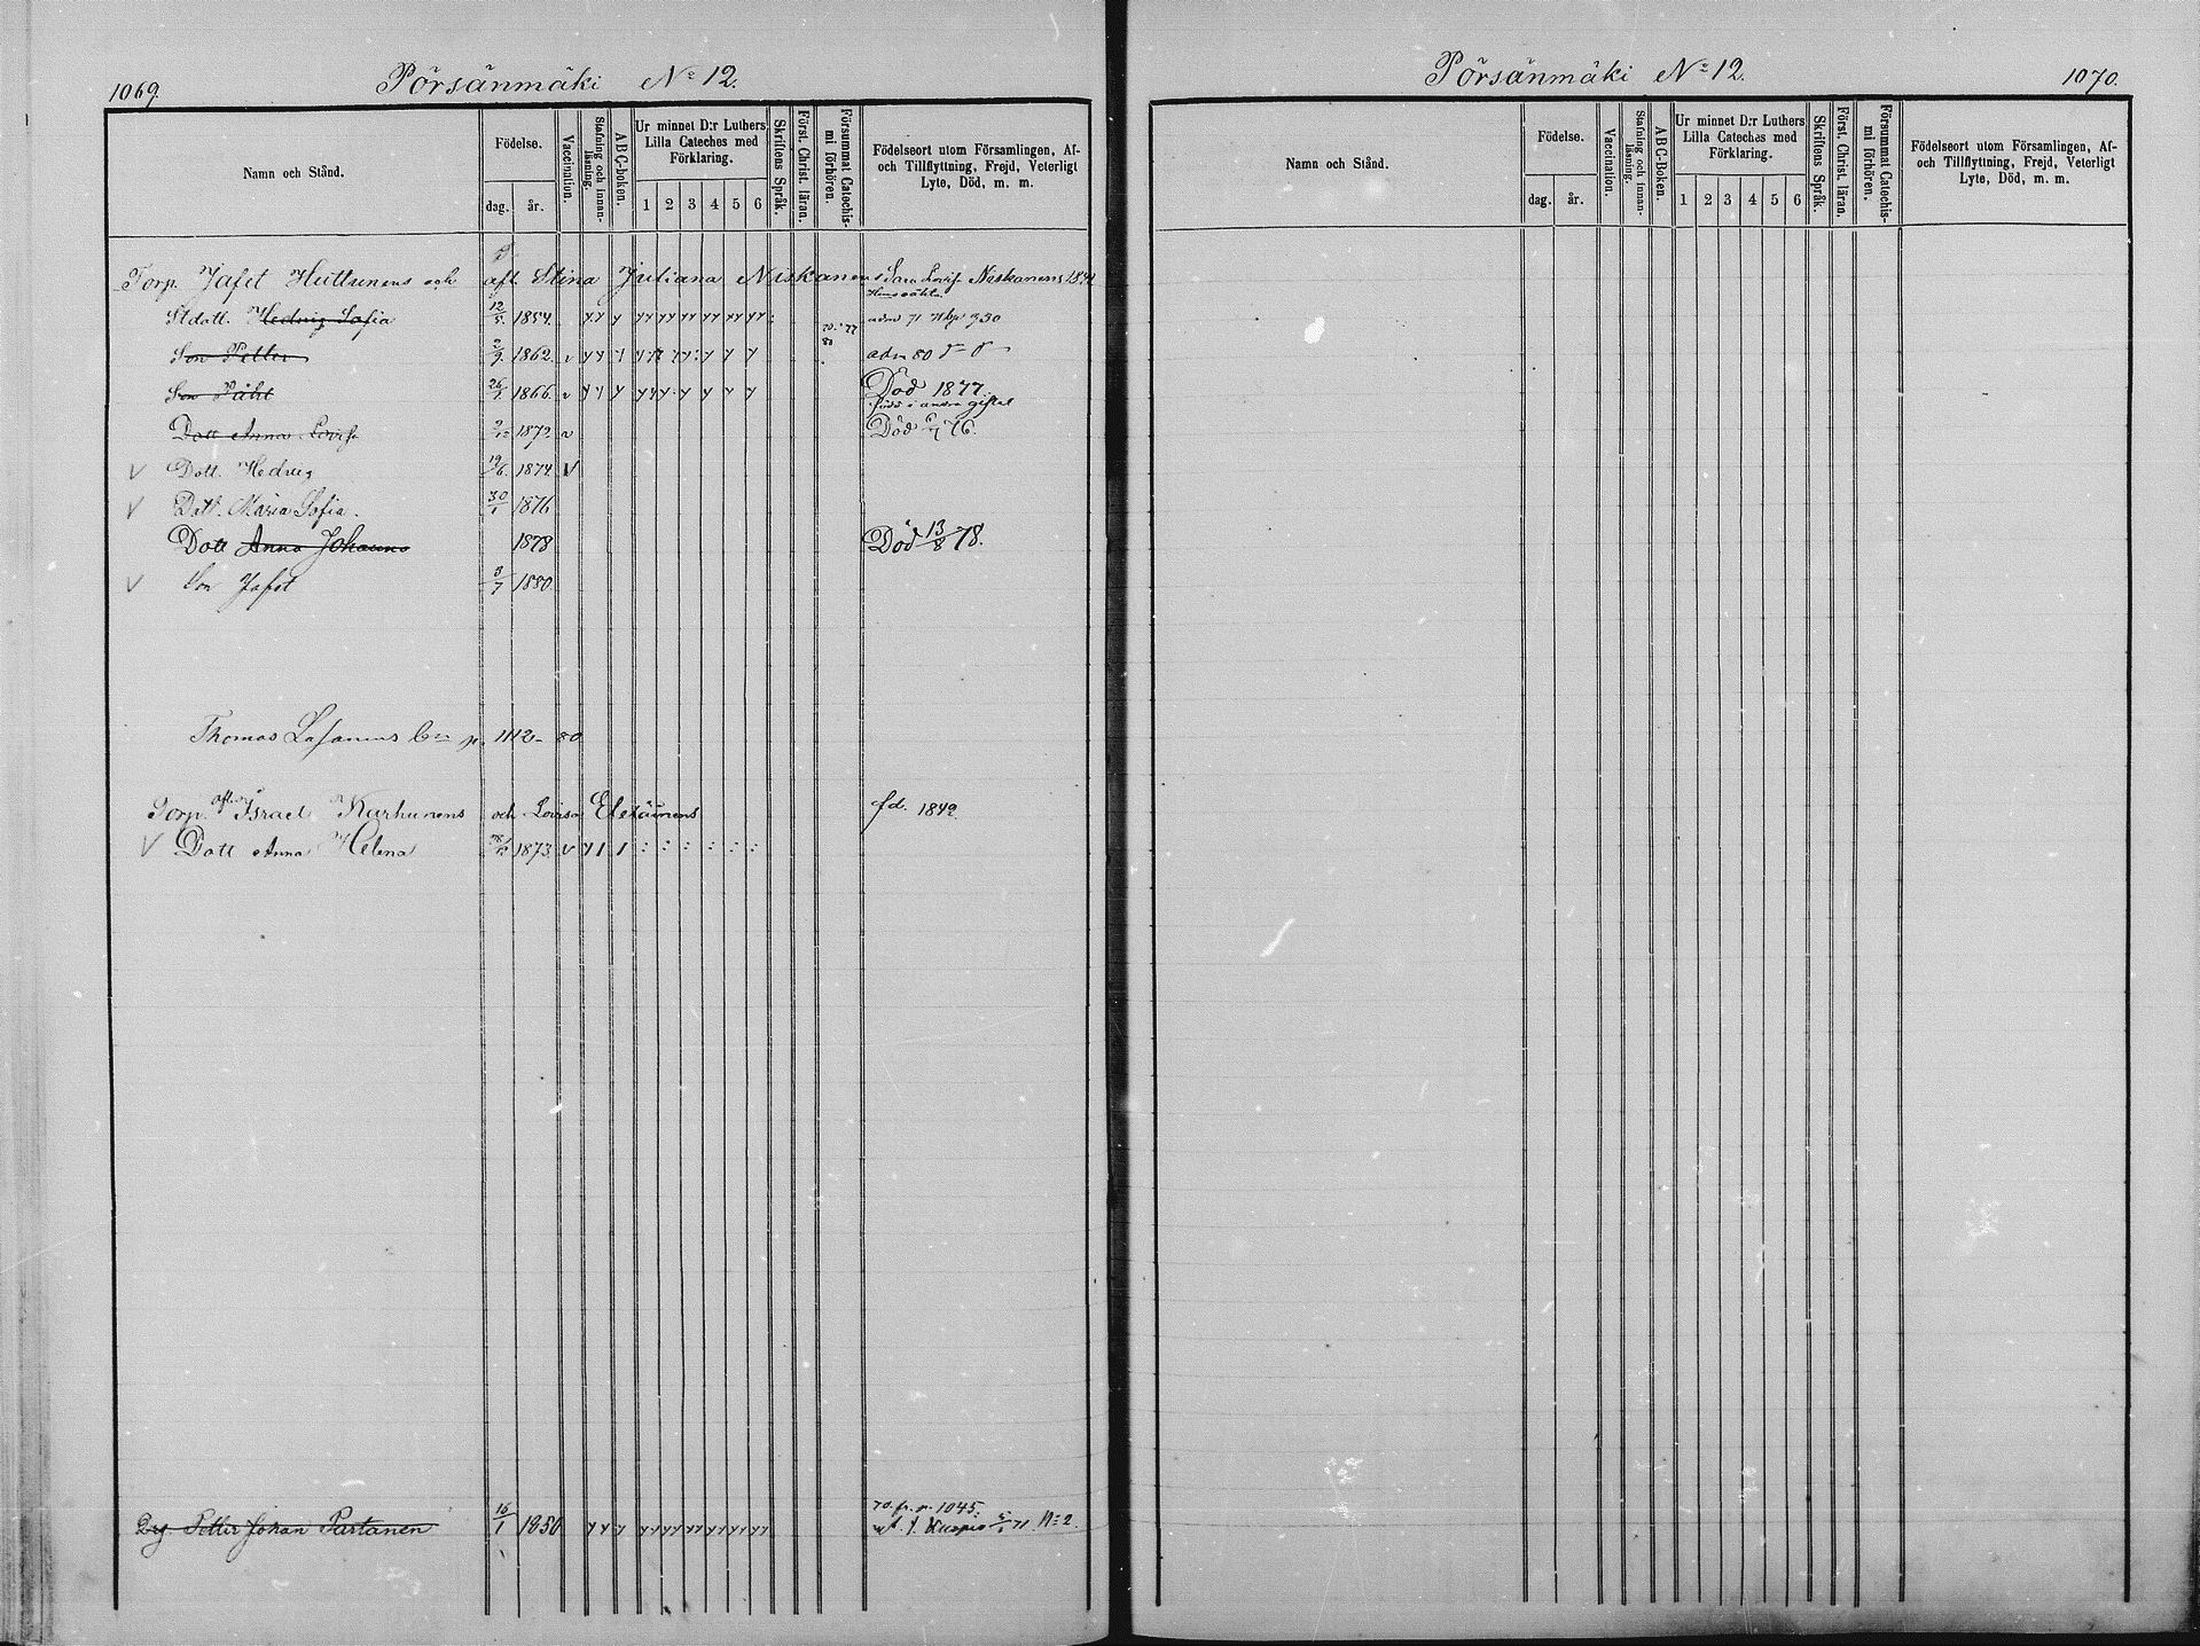 1069.
Pörsänmäki No 12.
Namn och Stånd.
Födelse.
dag.
år.
Vaccination.
Stafning och innan-
läsning.
ABC-boken.
Ur minnet D:r Luthers
Lilla Cateches med
Förklaring.
1 2 3 4 5 6
Skriftens Språk.
Först. Christ. läran.
Försummat Catechis-
mi förhören.
Födelseort utom Församlingen, Af-
och Tillflyttning, Frejd, Veterligt
Lyte, Död, m. m.
Torp. Jafet Huttunens och afl. Stina Juliana Niskanens Sara Lovisa Niskanens 1842
Stdott. Hedvig Sofia 12/5. 1854. adm 71
Son Petter 2/9. 1862. v adm 80
Son Påhl 26/9. 1866. v Död 1877.
född i andra giftet
Dott Anna Lovisa 1872. v Död 76.
V Dott. Hedvig 19/6. 1874. V
V Dott. Maria Sofia. 30/1 1876
Dott Anna Johanna 1878 Död 13/8 78.
V Son Jafet 3/7 1880.
Thomas p. 1112 - 80
Torp. afl. Israel Karhunens och Lovisa Eletäinens fd. 1842.
V Dott Anna Helena 1873. v
Drg Petter Johan Partanen 16/1 1850 70. fr. p. 1045.
ut. t. Kuopio 71. No 2.
Pörsänmäki No 12.
1070.
Namn och Stånd.
Födelse.
dag.
år.
Vaccination.
Stafning och innan-
läsning.
ABC-Boken.
Ur minnet D:r Luthers
Lilla Cateches med
Förklaring.
1 2 3 4 5 6
Skriftens Språk.
Först. Christ. läran.
Försummat Catechis-
mi förhören.
Födelseort utom Församlingen, Af-
och Tillflyttning, Frejd, Veterligt
Lyte, Död, m. m.